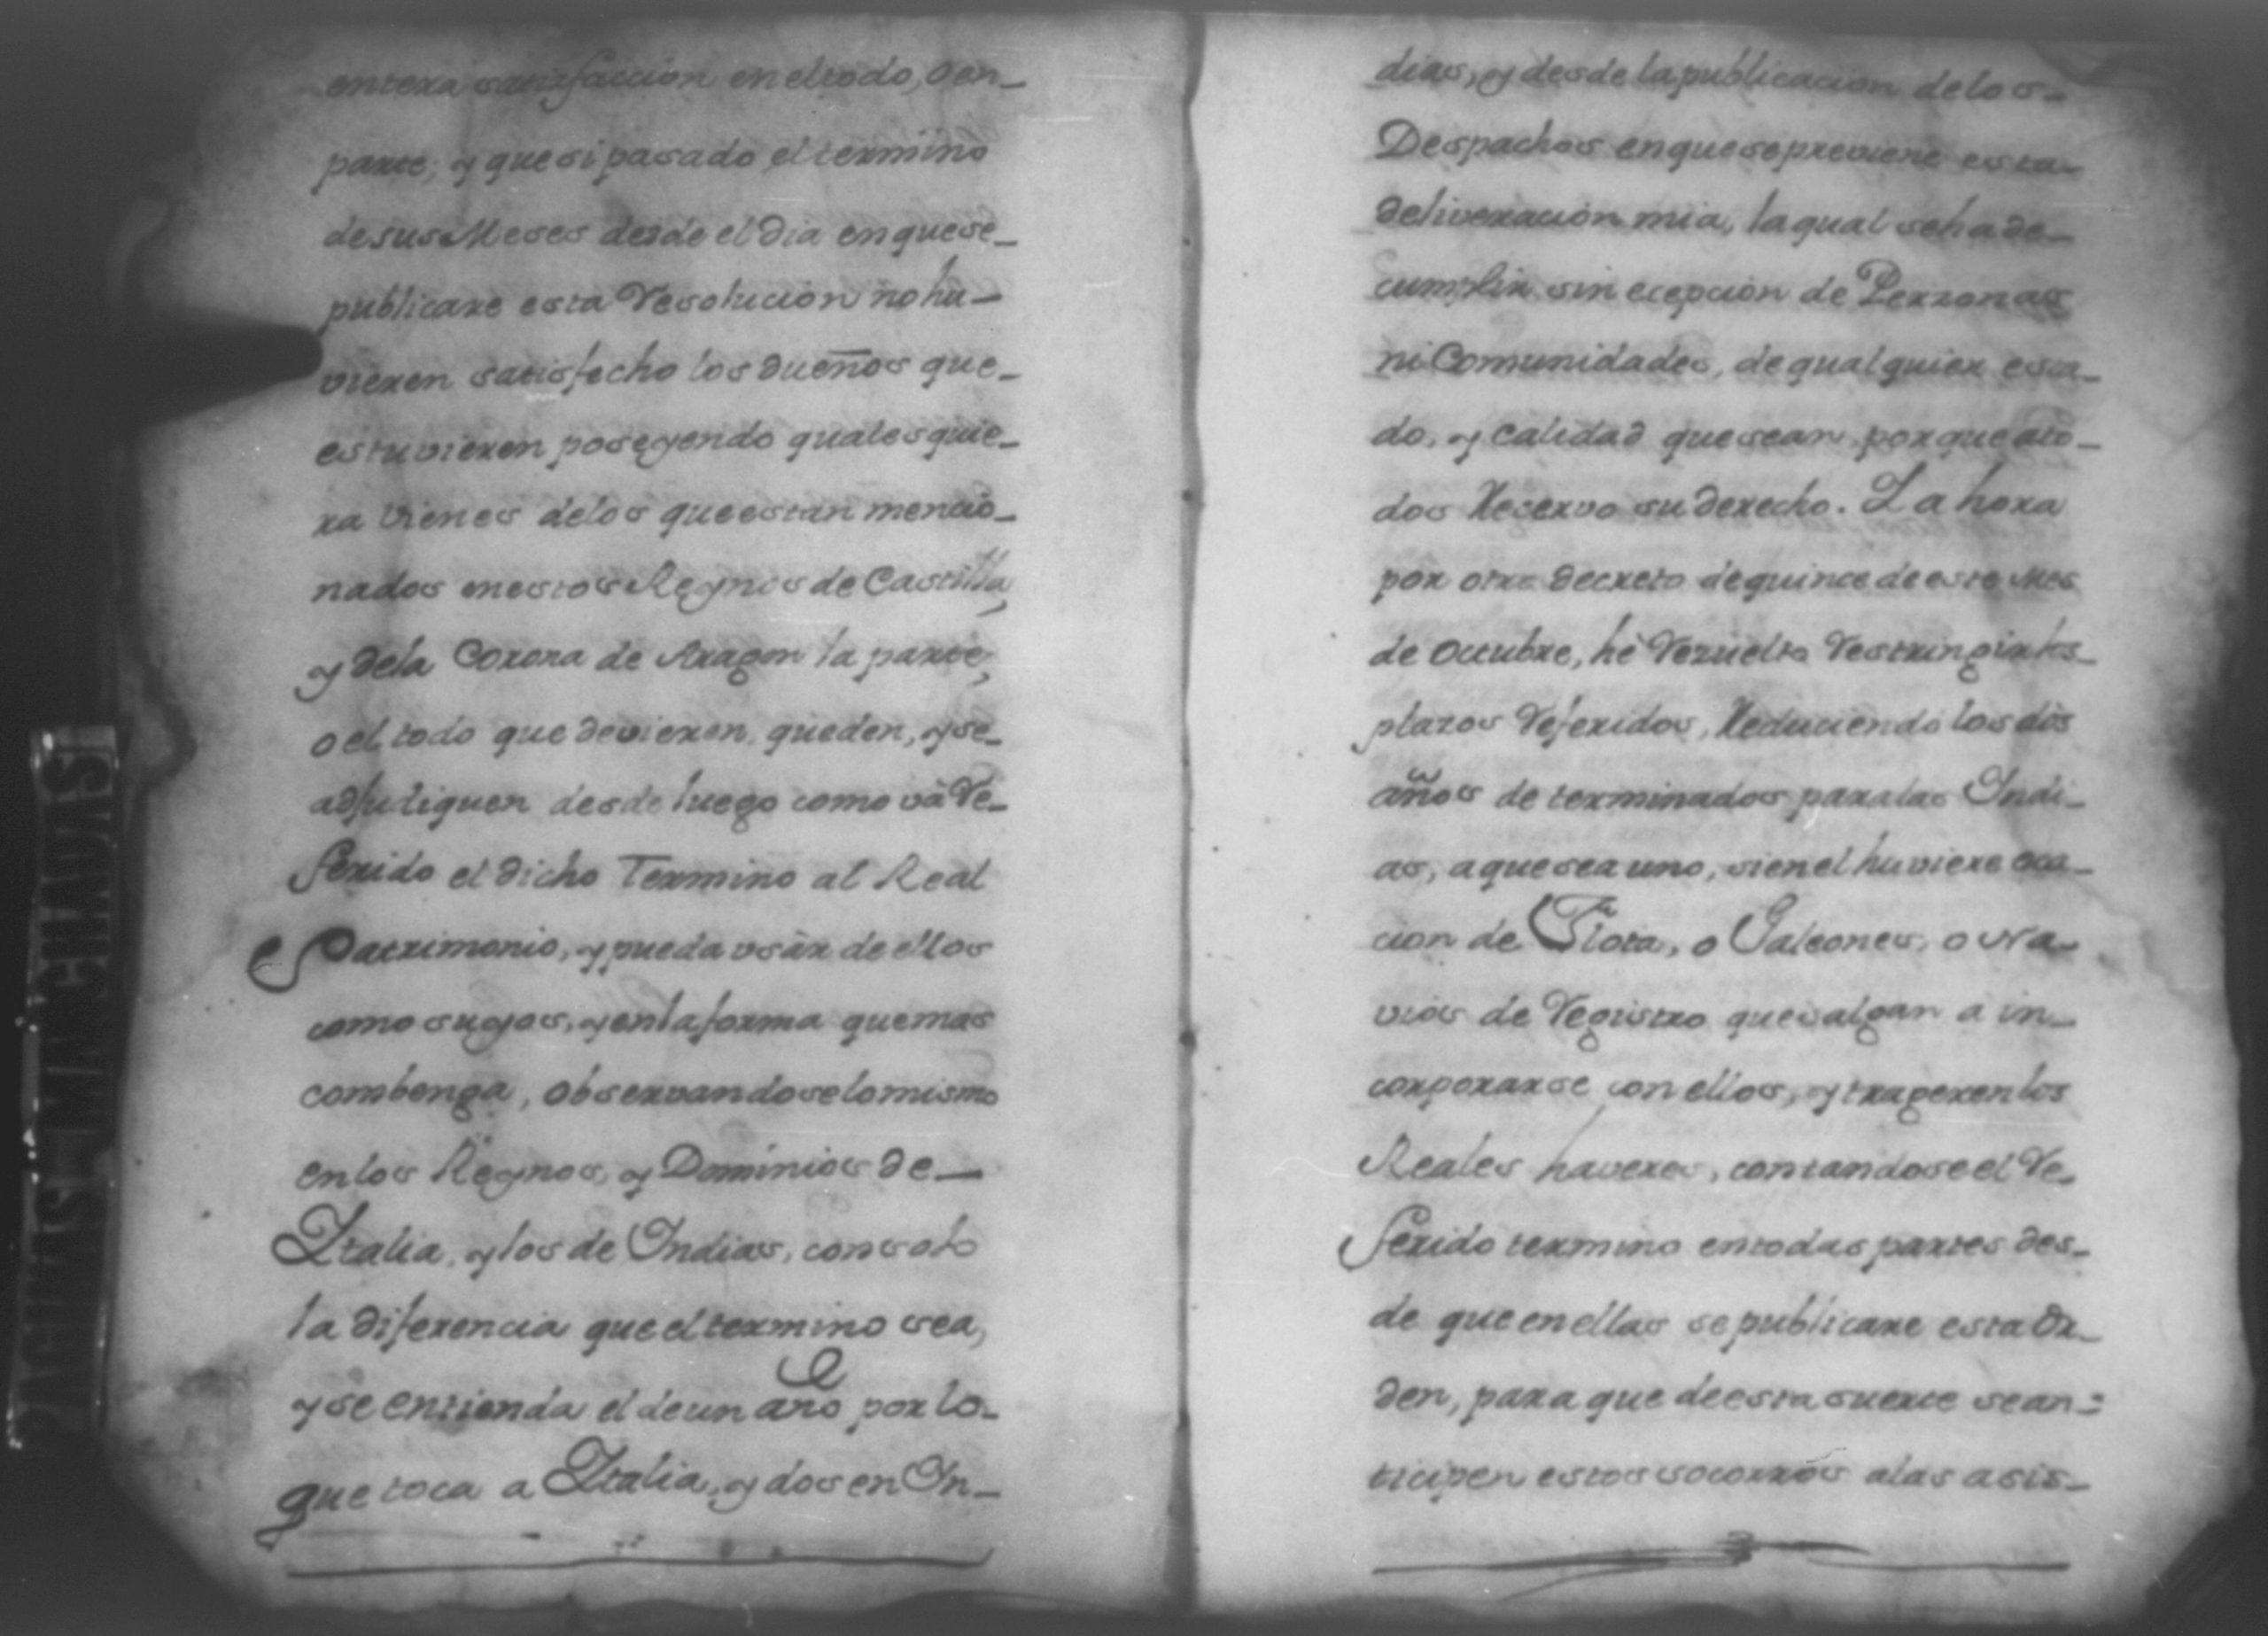 entera satisfaccion en el todo, o en_
parte; y que si pasado el termino
de sus Meses desde el dia en que se_
publicare esta Resolucion no hu_
vieren satisfecho los dueños que_
estuvieren poseyendo qualesquie_
ra vienes delos que estan mencio_
nados en estos Reynos de Castilla,
y dela Corona de Aragon la parte,
o el todo que devieren, queden, y se_
adjudiquen desde luego como và Re_
ferido el dicho Termino al Real
Patrimonio, y pueda usàr de ellos
como suyos, y en la forma que mas
combenga, observandose lo mismo
en los Reynos, y Dominios de_
Italia, y los de Indias, con solo
la diferencia que el termino sea,
y se entienda el de un año por lo_
que toca a Italia, y dos en In_
dias, y desde la publicacion de los_
Despachos en que se previene esta_
deliveracion mia, la qual se ha de_
cumplir sin ecepcion de Perzonas
ni Comunidades, de qualquier esta_
do, y calidad que sean, porque a to_
dos Recervo su derecho. La hora
por otro decreto de quince de este Mes
de Octubre, hè Rezuelto Restringir los_
plazos Referidos, Reduciendo los dos
años de terminados para las Indi_
as, a que sea uno, si en el huviere oca_
cion de Flota, o Galeones, o Na_
vios de Registro que salgan a in_
corporarse con ellos, y trageren los
Reales haveres, contandose el Re_
ferido termino en todas partes des_
de que en ellas se publicare esta Or_
den, para que de esta suerte se an=
ticipen estos socorros a las asis_